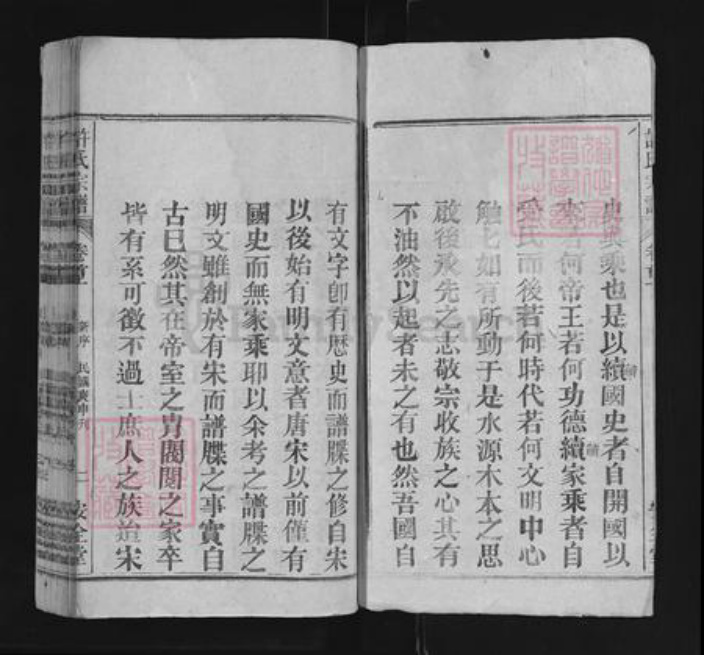 史與乘也是以續國史者自開國以
來若何帝王若何功德續家乘者自
受氏而後若何時代若何文明中心
觸之如有所動于是水源木本之思
啟後承先之志敬宗收族之心其有
不油然以起者未之有也然吾國自
有文字卽有歷史而譜牒之修自宋
以後始有明文意者唐宋以前僅有
國史而無家乘耶以余考之譜牒之
明文雖創於有宋而譜牒之事實自
古已然其在帝室之胄閥閱之家卒
皆有系可徵不過士庶人之族迨宋
許氏宗譜
卷首
新序
民國庚申刊
一
安全堂
FamilySearch